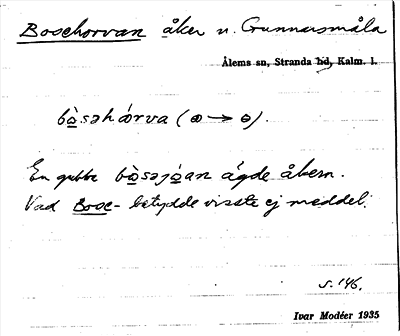 Bosehorvan åker n. Gunnarsmåla
Ålems sn, Stranda hd, Kalm. l.
bòsəhɷrva (ɷ → ɵ).
En gubbe bòsəjóan ägde åkern.
Vad Bose- betydde visste ej meddel.
s. 146.
Ivar Modéer 1935